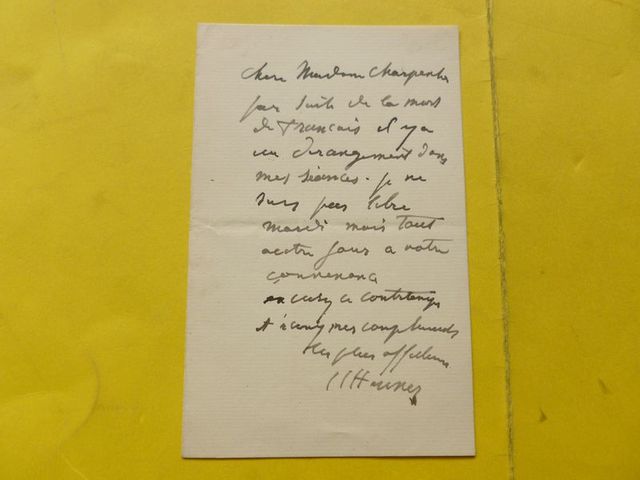 chere Madame Charpentier
par suite de la mort
de Francais il y a
eu derangement dans
mes séances. je ne
suis pas libre
mardi mais tout
autre jour a votre
convenance
excusez ce contretemps
et recevez mes compliments
les plus affectueux
JJ Henner